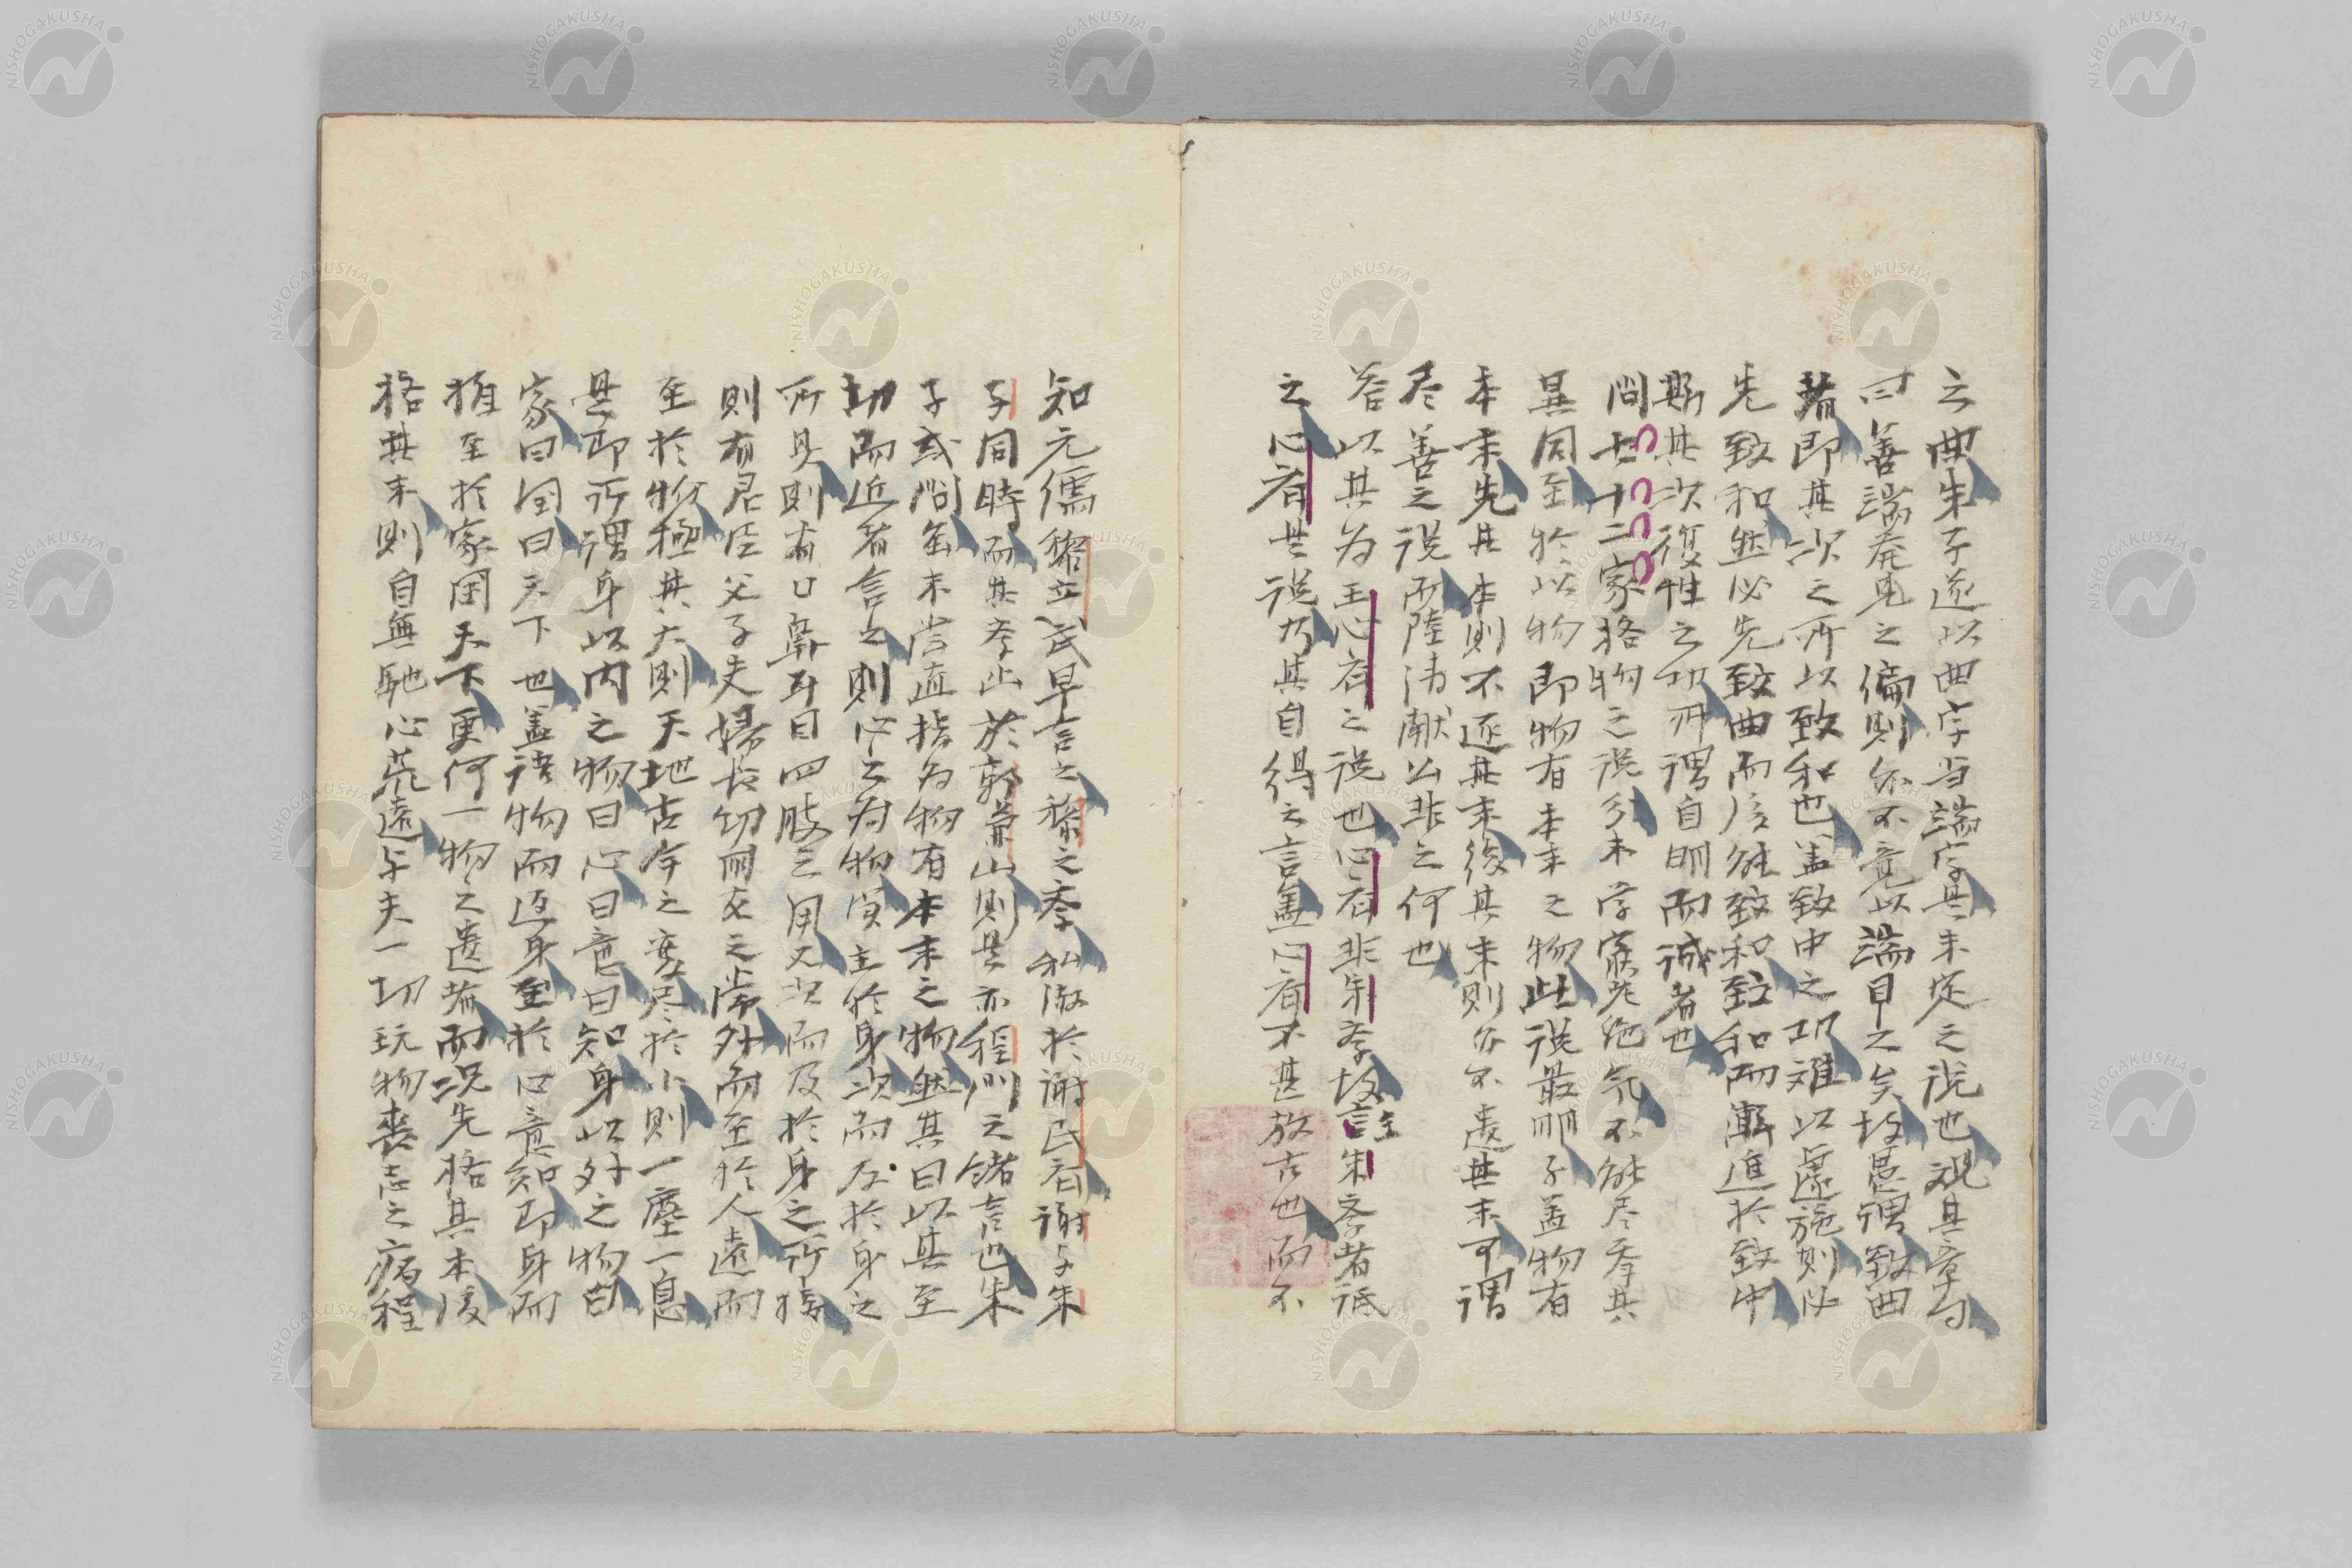 云曲朱子遂以曲字当端字是未定之说也观其章句
曰善端発見之偏則亦不竟以端目之矣故愚謂致曲
者即其次之所以致和也盖致中之功难以遽施則必
先致和然必先致曲而后能致和致和而漸進於致中
斯其次復性之功所謂自明而誠者也
問七十二家格物之说刘未学寃死絶気不能尽其
異同至於以物即物有本末之物此说最明子盖物有
本末先其本則不逐其末後其末則亦不遺其末可謂
尽善之说而陸清献公非之何也
答以其为王心斎之说也心斎非朱学故言主朱学者詆
之心斎是说乃其自得之言盖心斎不甚放古也而不
知元儒黎立武早言之黎之学私淑於謝氏斎謝与朱
子同時而其学出於郭兼山則是亦程門之绪言也朱
子或問虽未尝直指为物有本末之物然其曰以其至
切而近者言之則心之为物實主於身次而及於身之
所具則有口鼻耳目四肢之用又次而及於身之所接
則有君臣父子夫婦长幼朋友之常外而至於人遠而
至於物極其大則天地古今之変尽於小則一塵一息
是即所謂身以内之物曰心曰意曰知身以外之物曰
家曰国曰天下也盖语物而返身至於心意知即身而
推至於家国天下更何一物之遺者而况先格其本後
格其末則自無馳心荒遠与夫一切玩物喪志之病程
NISHOGAKUSHA